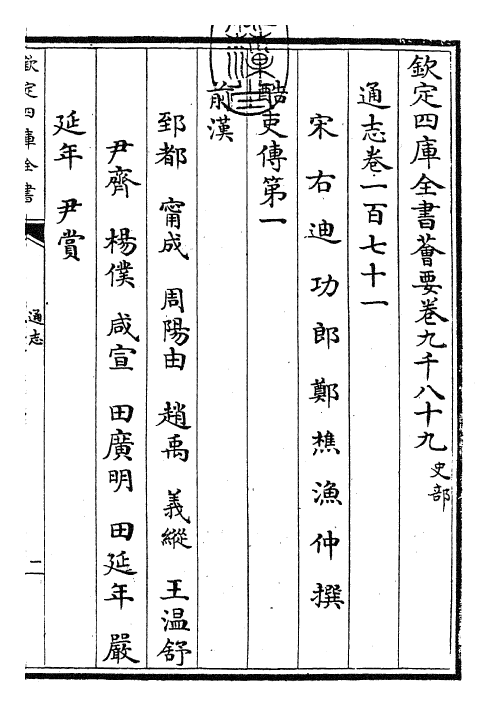 欽定四庫全書薈要卷九千八十九 史部
通志卷一百七十一
宋右迪功郎鄭樵漁仲撰
酷吏傳第一
前漢
郅都 甯成 周陽由 趙禹 義縱 王温舒
尹齊 楊僕 咸宣 田廣明 田延年 嚴
延年 尹賞
欽定四庫全書
通志
二